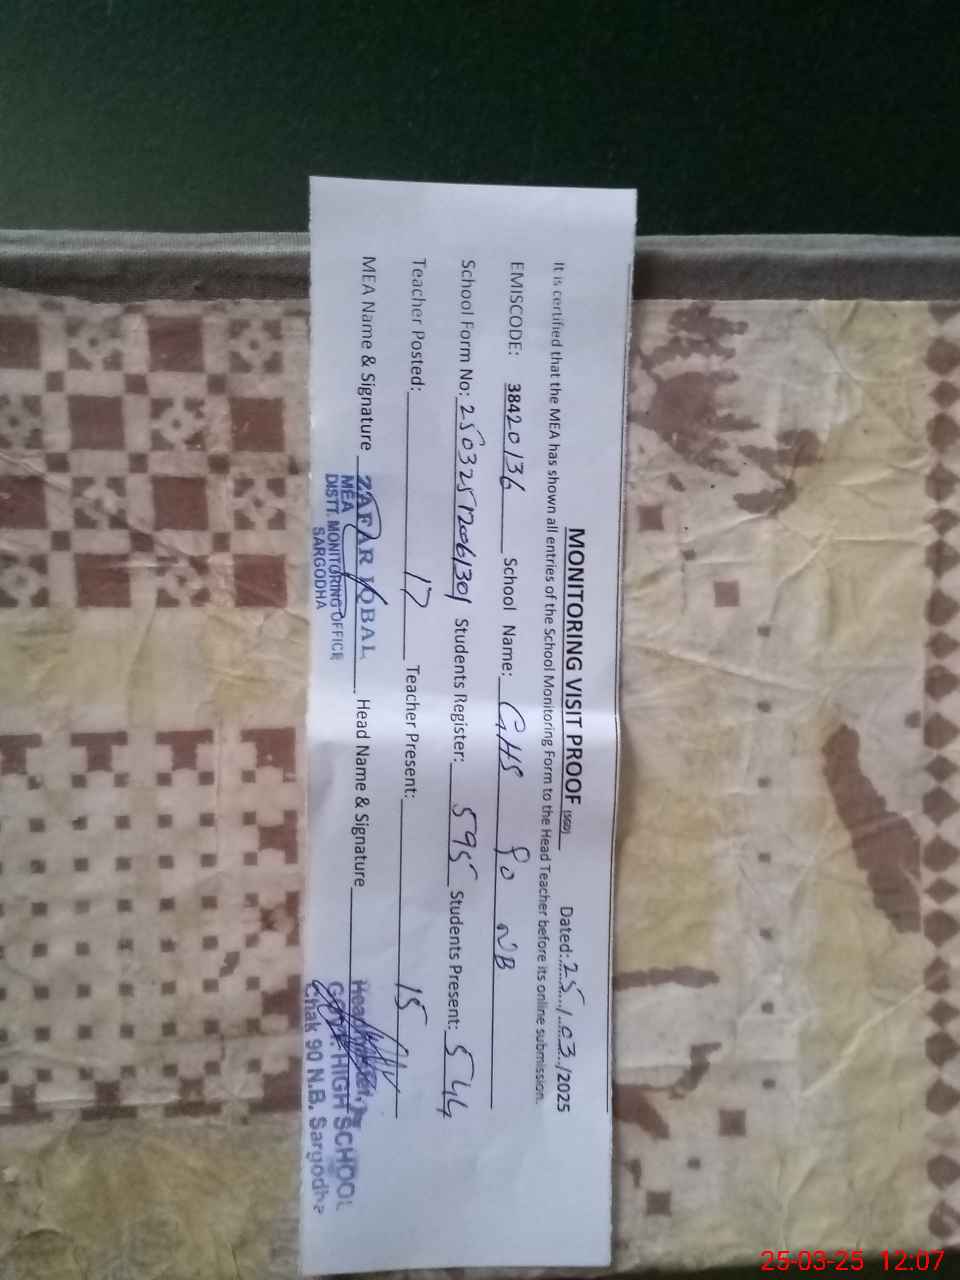 MONITORING VISIT PROOF (SGD) Dated: 25/03/2025
It is certified that the MEA has shown all entries of the School Monitoring Form to the Head Teacher before its online submission.
EMISCODE: 38420136 School Name: GHS 90 NB
School Form No: 25032512061301 Students Register: 595 Students Present: 544
Teacher Posted: 17 Teacher Present: 15
MEA Name & Signature ZAFAR IQBAL Head Name & Signature
MEA
DISTT. MONITORING OFFICE
SARGODHA
GOVT. HIGH SCHOOL
Chak 90 N.B. Sargodha
25-03-25 12:07